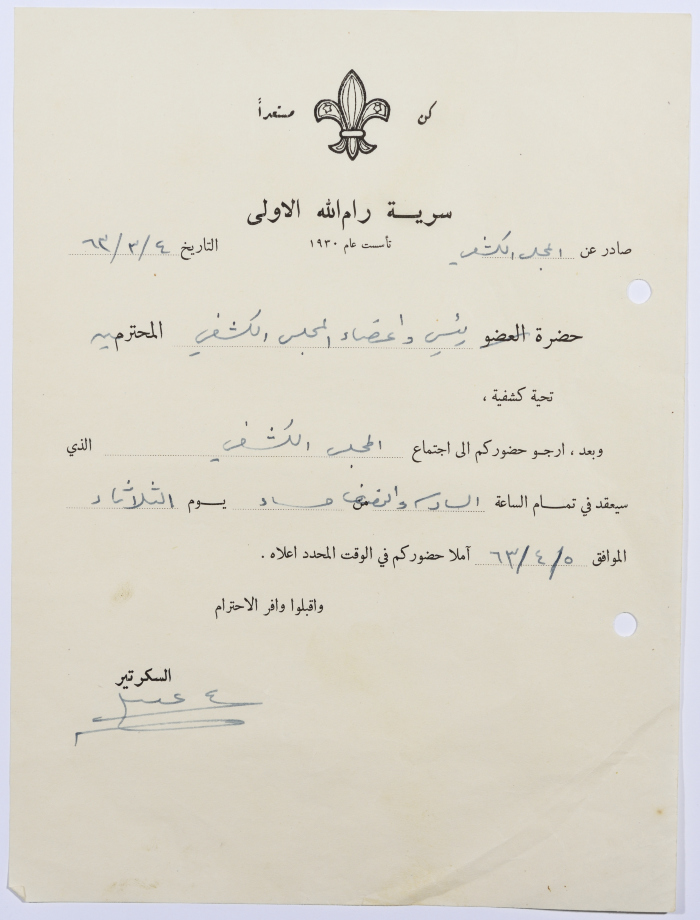 كن مستعداً
سرية رام الله الاولى
تأست عام ١٩٣٠
صادر عن المجلس الكشفي التاريخ ٤/٣/٦٣
حضرة العضو رئيس واعضاء المجلس الكشفي المحترمين
تحية كشفية ،
وبعد ، ارجو حضوركم الى اجتماع المجلس الكشفي الذي
سيعقد في تمام الساعة السادسة والنصف من مساء يوم الثلاثاء
الموافق ٥/٤/٦٣ آملا حضوركم في الوقت المحدد اعلاه .
واقبلوا وافر الاحترام
السكرتير